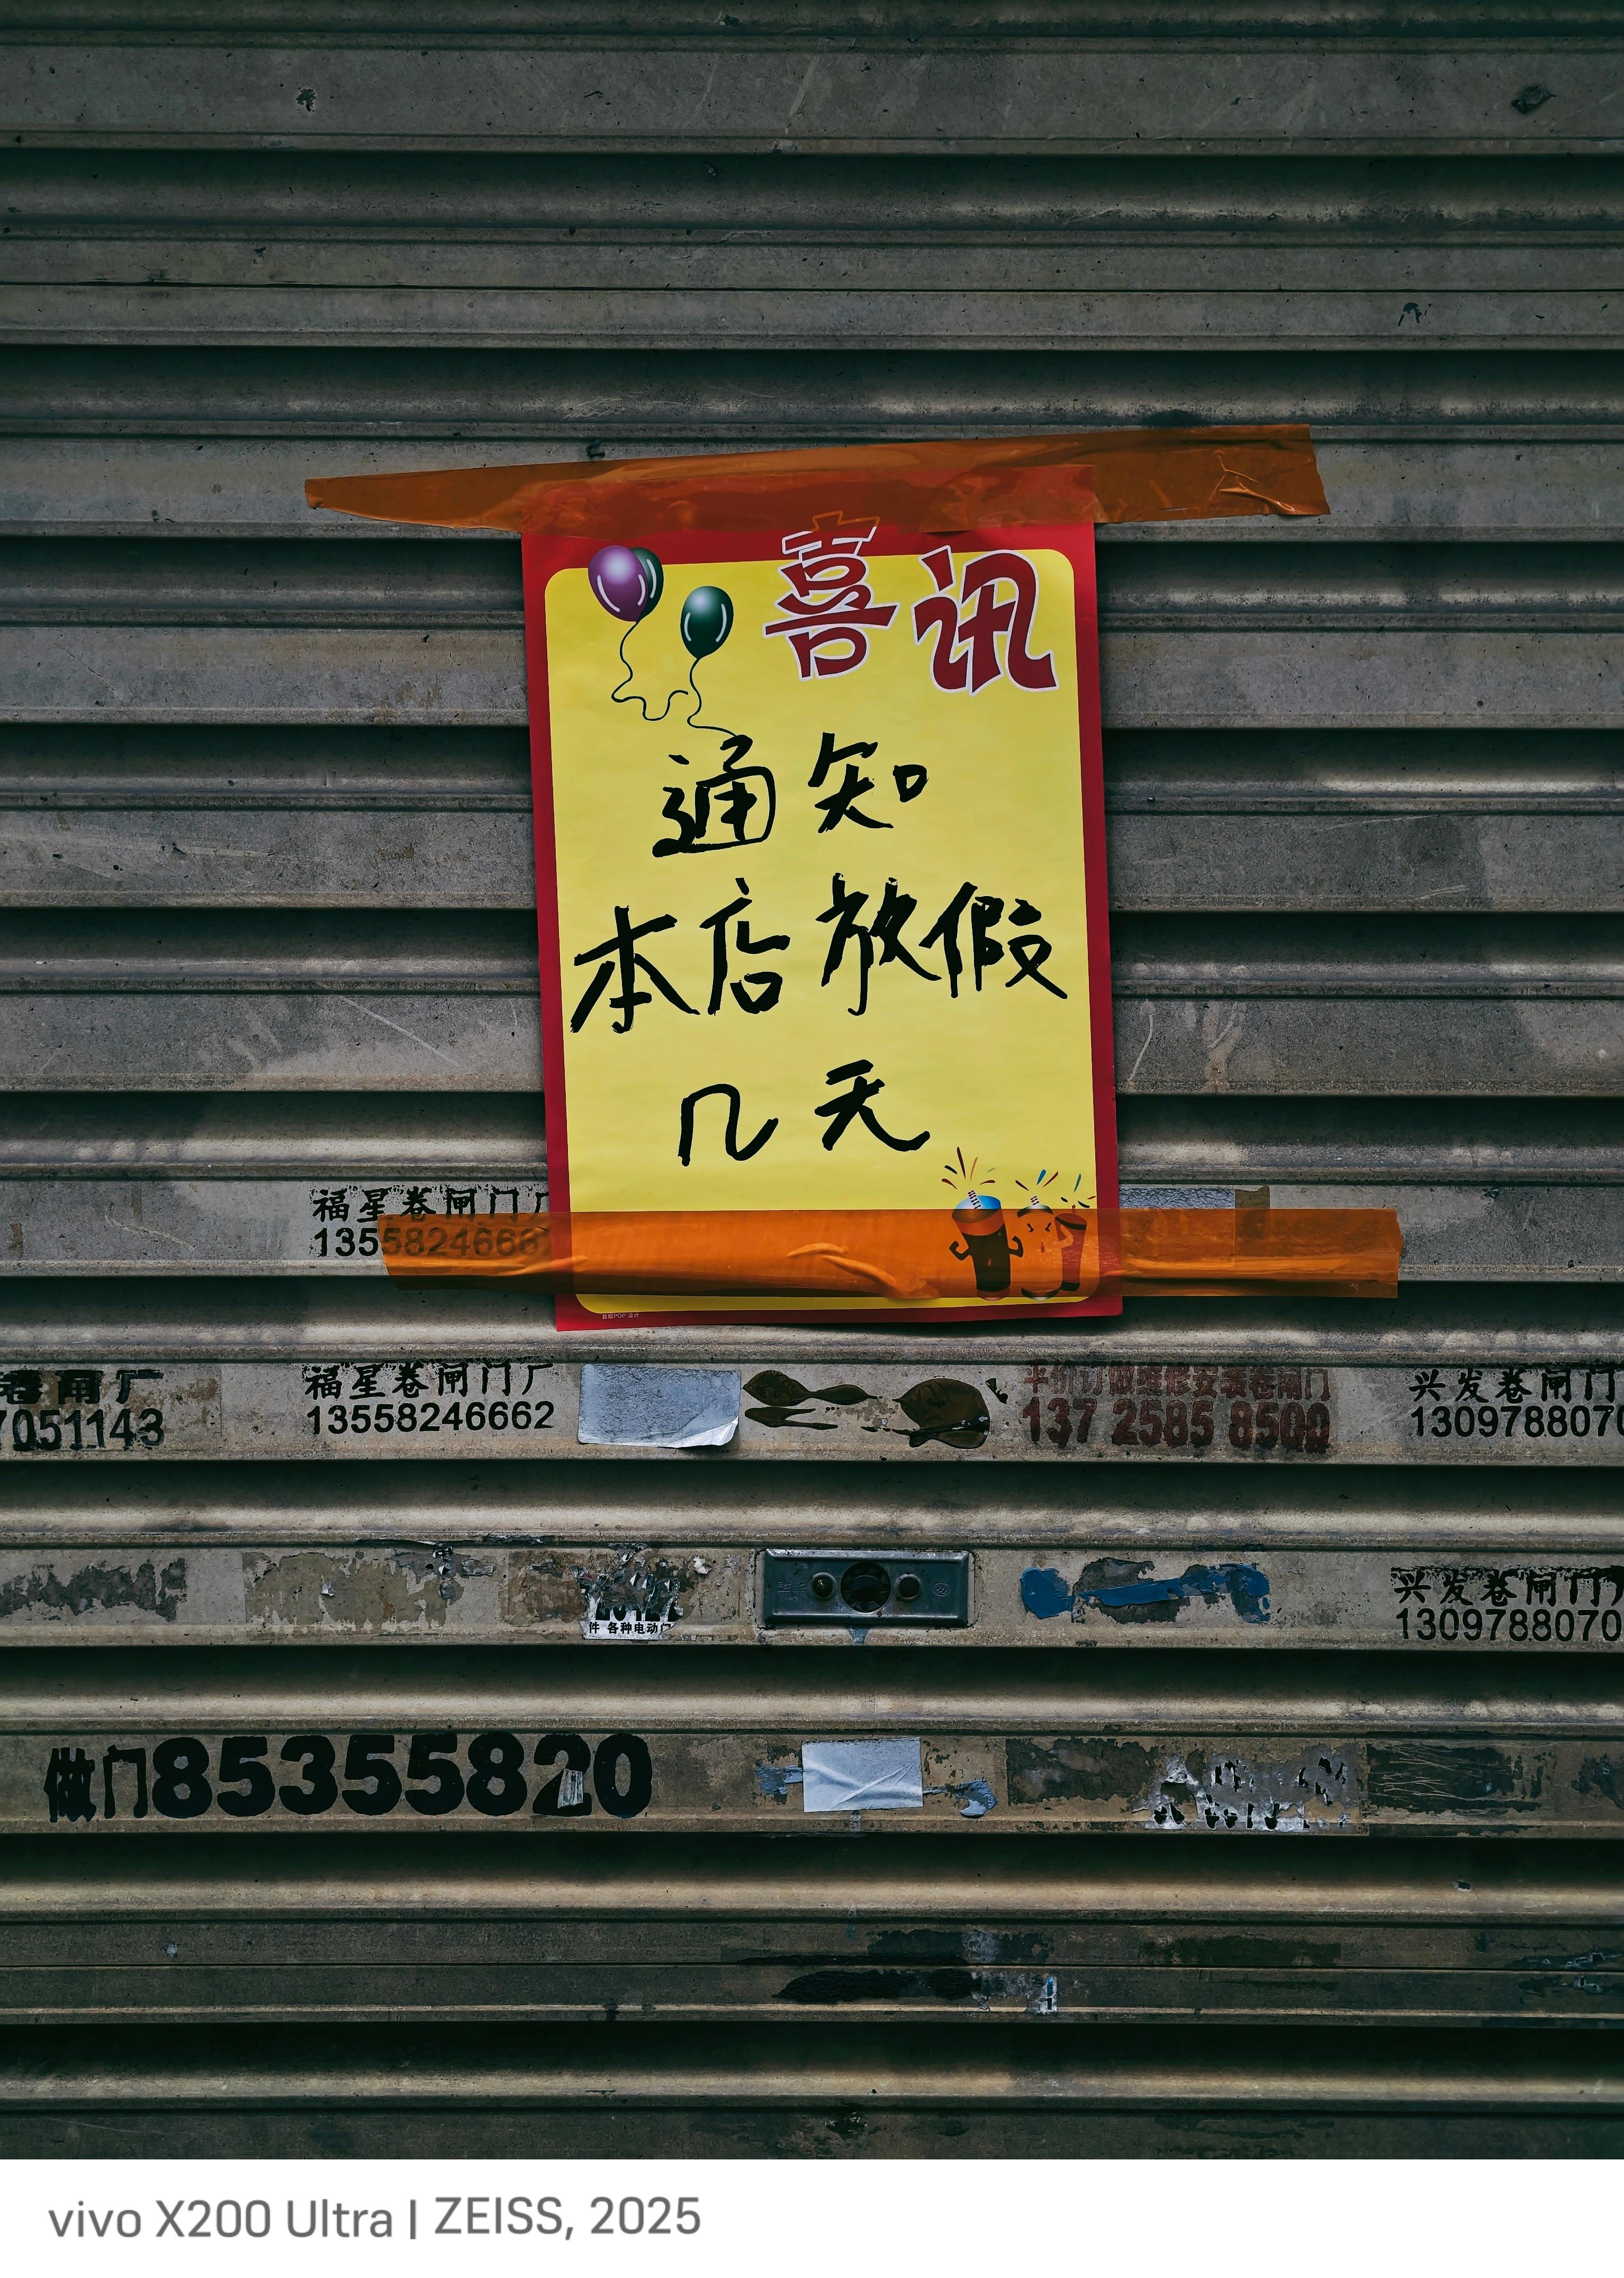 喜讯
通知
本店放假
几天
福星卷闸门厂
1355824666
卷闸厂
7051143
福星卷闸门厂
13558246662
平价订做维修安装卷闸门
137 2585 8500
兴发卷闸门
1309788070
件 各种电动门
兴发卷闸门
1309788070
做门85355820
vivo X200 Ultra | ZEISS, 2025